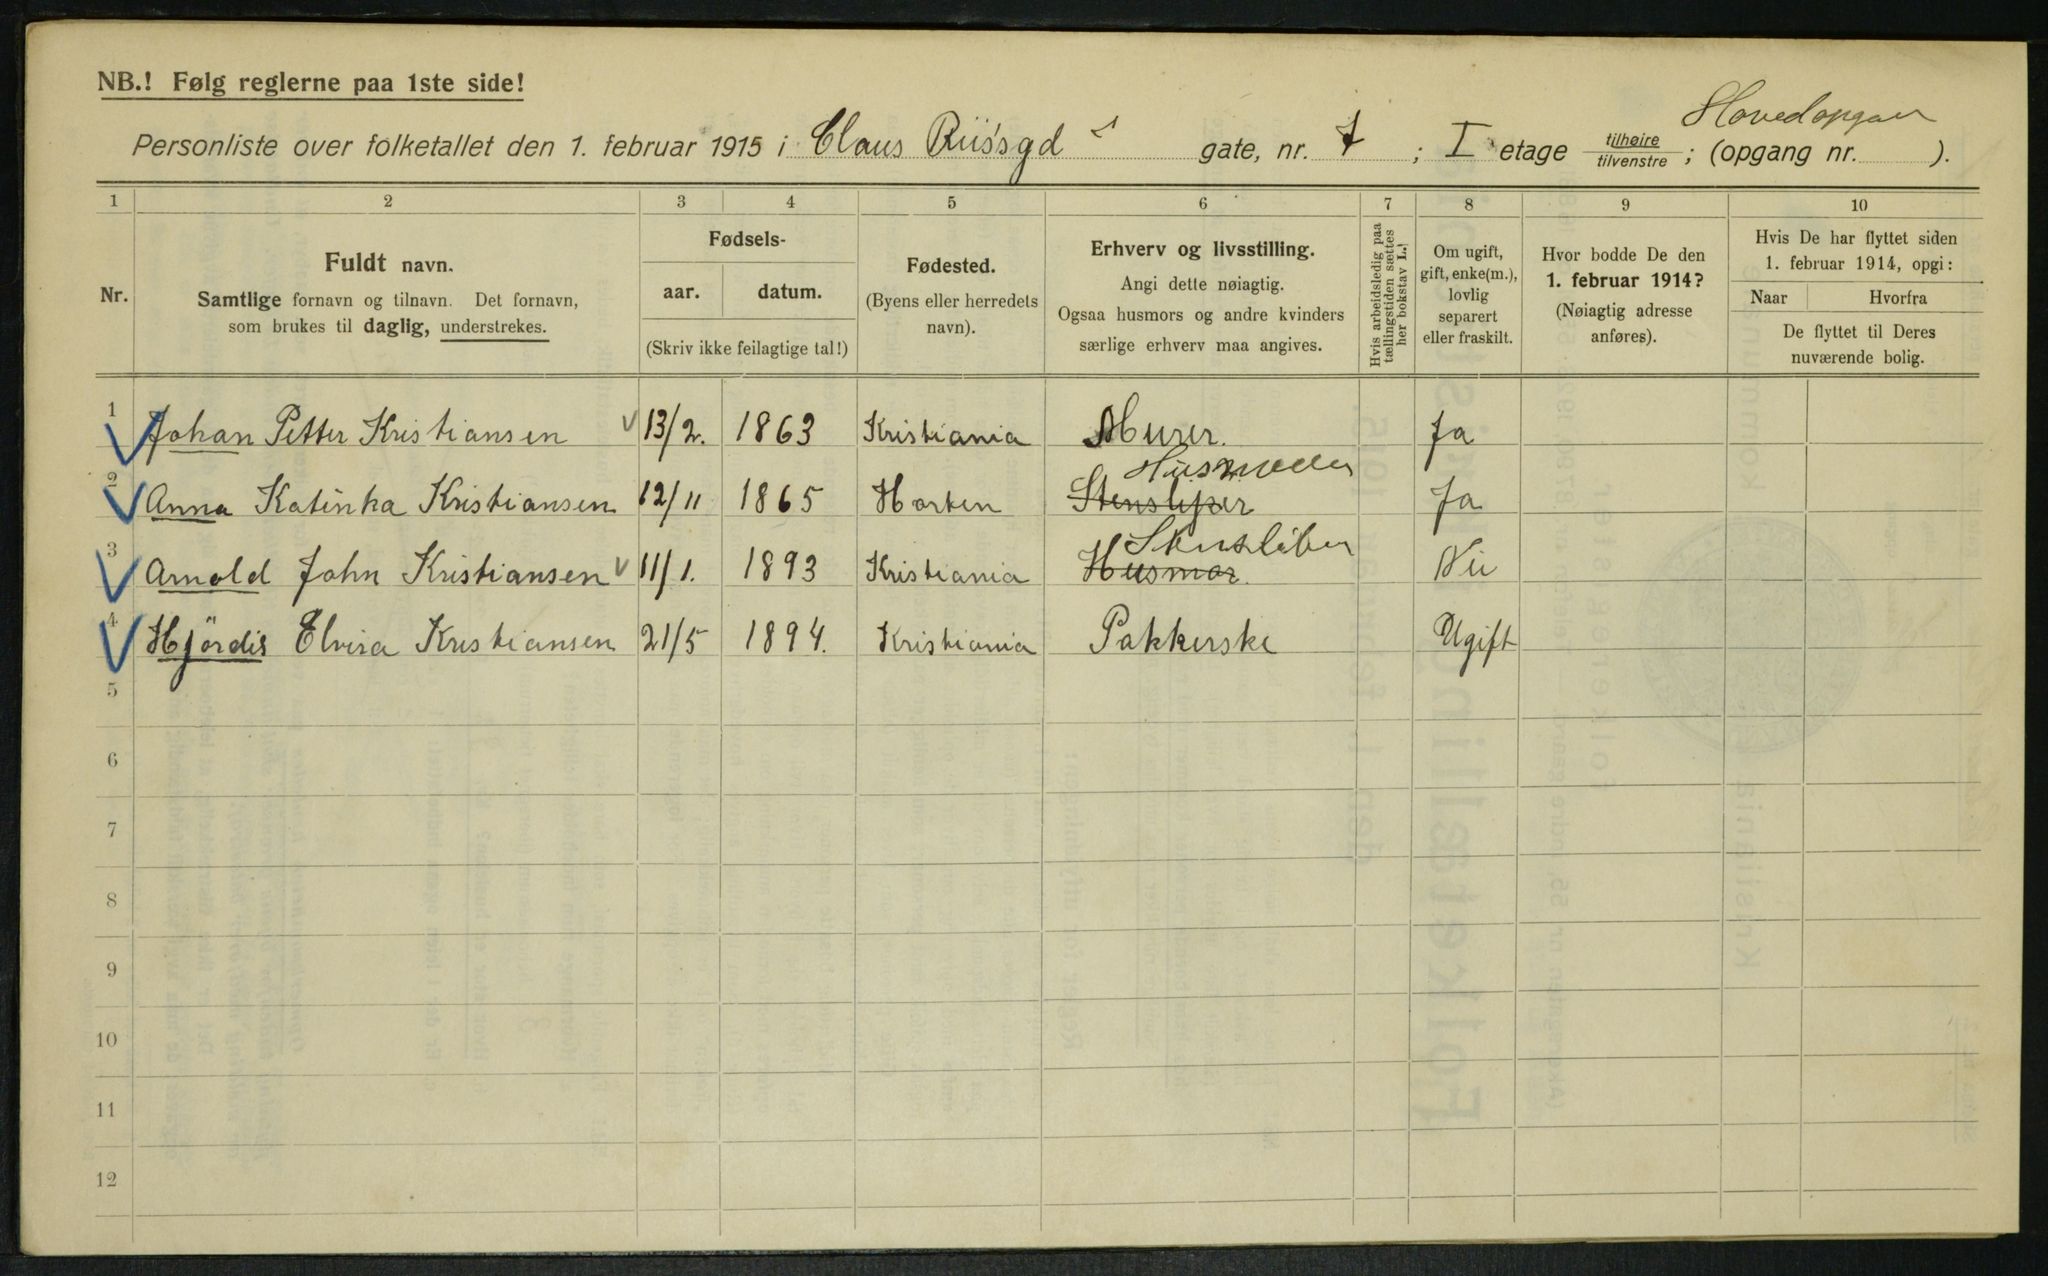 NB.! Følg reglerne paa 1ste side!
Hovedopgan
Personliste over folketallet den 1. februar 1915 i Claus Riis'sgd gate, nr. 7; I etage tilhøire tilvenstre; (opgang nr. ).
1 2 3 4 5 6 7 8 9 10
Nr.
Fuldt navn.
Samtlige fornavn og tilnavn. Det fornavn,
som brukes til daglig, understrekes.
Fødsels-
aar. datum.
(Skriv ikke feilagtige tal!)
Fødested.
(Byens eller herredets
navn).
Erhverv og livsstilling.
Angi dette nøiagtig.
Ogsaa husmors og andre kvinders
særlige erhverv maa angives.
Hvis arbeidsledig paa
tællingstiden sættes
her bokstav L.!
Om ugift,
gift, enke(m.),
lovlig
separert
eller fraskilt.
Hvor bodde De den
1. februar 1914?
(Nøiagtig adresse
anføres).
Hvis De har flyttet siden
1. februar 1914, opgi:
Naar Hvorfra
De flyttet til Deres
nuværende bolig.
1 Johan Petter Kristiansen 13/2. 1863 Kristiania Murer. Ja
Husmoder
2 Anna Katinka Kristiansen 12/11 1865 Horten Stensliper Ja
3 Arnold John Kristiansen 11/1. 1893 Kristiania Husmor. Nei
4 Hjördis Elvira Kristiansen 21/5 1894. Kristiania Pakkerske Ugift
5
6
7
8
9
10
11
12